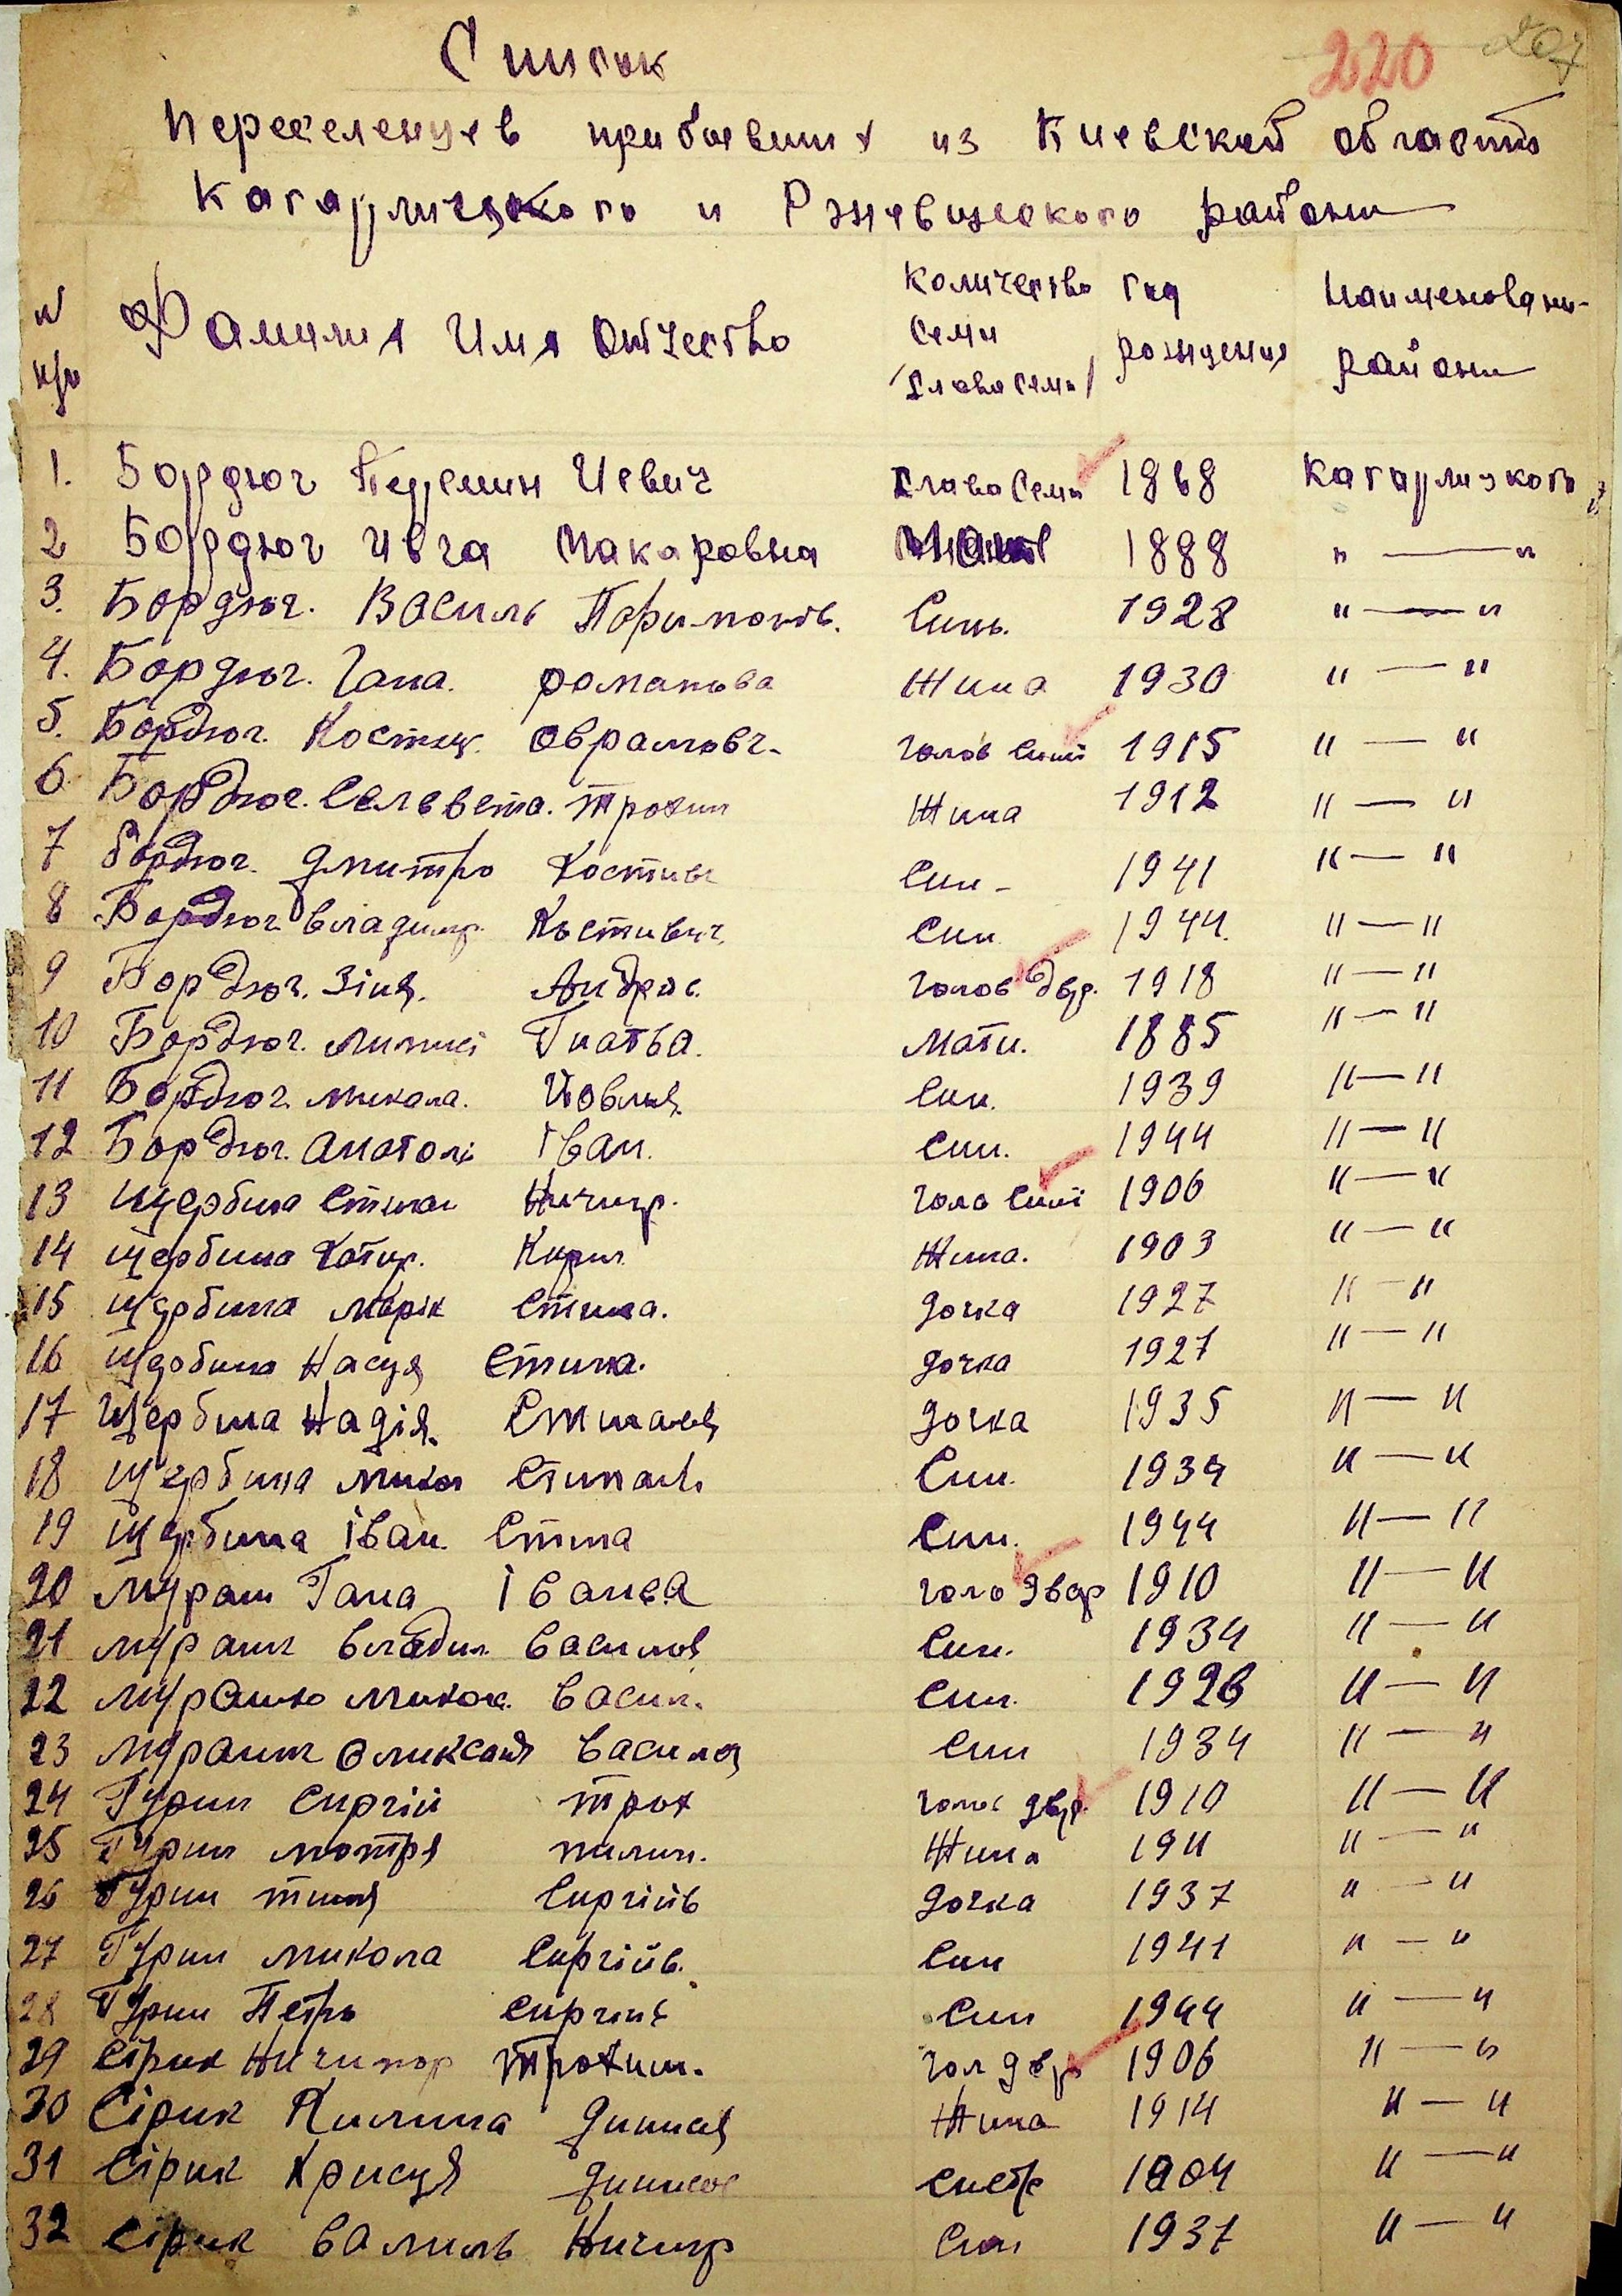 220 207
Список
Переселенцев прибывших из Киевской области
Кагарлицкого и Ржевищеского района
Количество Год Наименовани-
№ Фамилия Имя Отчество семи рождения района
п/п /Глава семи/
1. Бордюг Ивич глава семи 1868 Кагарлизкого
2 Бордюг Ивга Макаровна 1888 " — "
3. Бордюг. Василь Син. 1928 " — "
4. Бордюг. Гана. романьва Жина 1930 " — "
5. Бордюг. Костян. Оврамовч. голов симі 1915 " — "
6. Бордюг. Селевета. трохим Жина 1912 " — "
7 Бордюг. Дмитро Костивч Син - 1941 " — "
8 Бордюг Владимир. Костивич. Син 1944. " — "
9 Бордюг. Зіня. Андрів. голов двр. 1918 " — "
10 Бордюг. Гнатва. Мати. 1885 " — "
11 Бордюг. Микала. Син. 1939 " — "
12 Бордюг. Анатолі Іван. Син. 1944 " — "
13 Щербина Степан Ничипр. голо симі 1906 " — "
14 Щербина Катир. Кирил Жина. 1903 " — "
15 Щербина Марік Стипа. дочка 1927 " — "
16 Щербина Насця Стипа. дочка 1927 " — "
17 Щербина Надія. Стипанв дочка 1935 " — "
18 Щербина Микол Стипанв Син. 1934 " — "
19 Щербина Іван. Стипа Син. 1944 " — "
20 Мураш Гана Іванва голо двор 1910 " — "
21 Мурашк Владим. Василов Син. 1934 " — "
22 Мурашко Микола. Васил. Син. 1926 " — "
23 Мурашк Оликсан Василов Син 1934 " — "
24 Гурин Сиргій трох голов двр. 1910 " — "
25 Гурин Мотря пилип. Жина 1911 " — "
26 Гурин Сиргійв дочка 1937 " — "
27 Гурин Микола Сиргійв. Син 1941 " — "
28 Гурин Петро Сиргійв Син 1944 " — "
29 Сірик Ничипор Трохим. гол двр 1906 " — "
30 Сірик Килина Динисв Жина 1914 " — "
31 Сірик Крисця Динисов Систр 1904 " — "
32 Сірик Василь Ничипр Син 1937 " — "